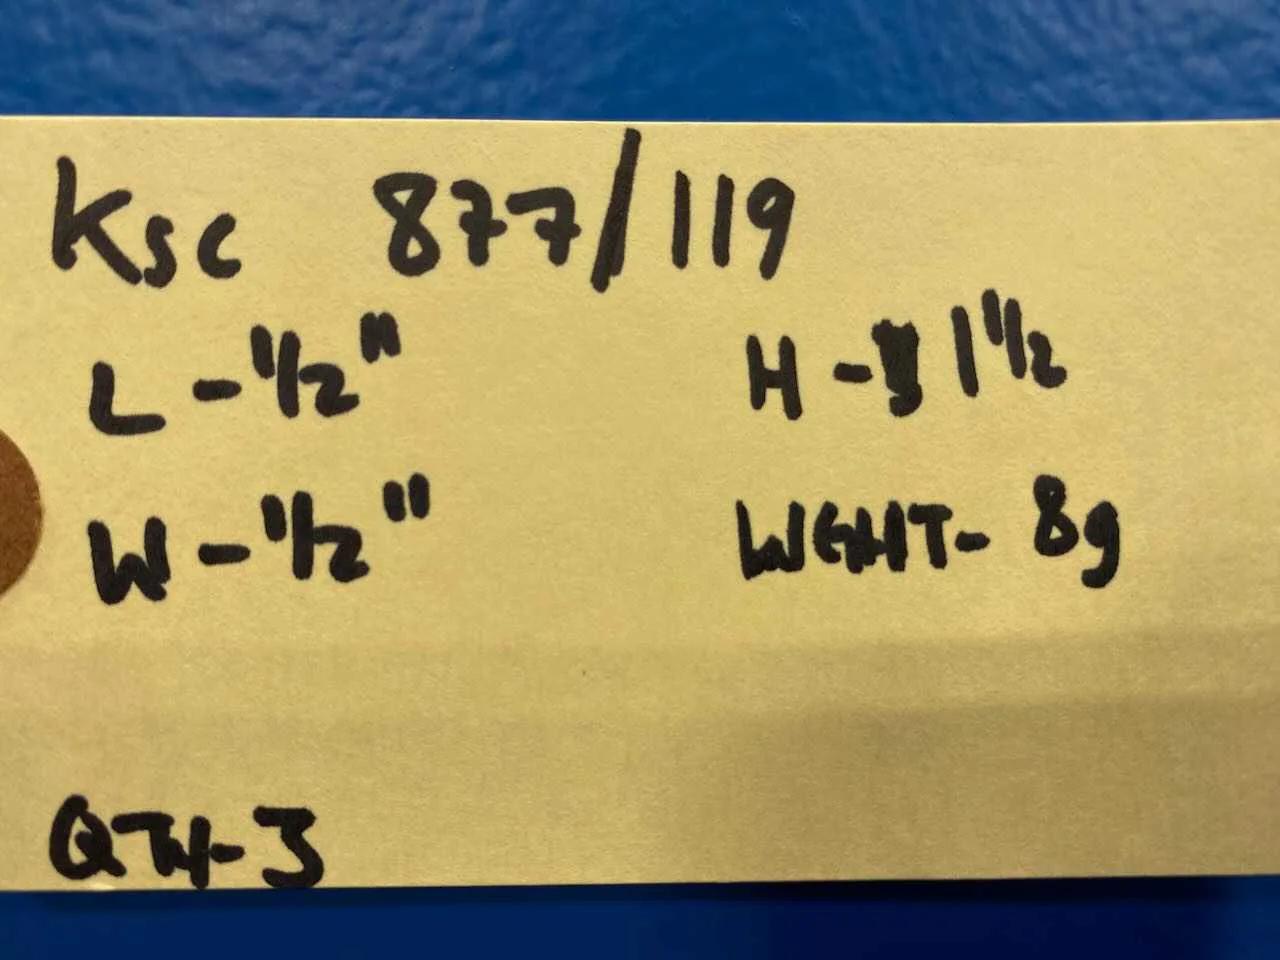 Ksc 877/119
L - 1/2" H - 1 1/2
W - 1/2" WGHT- 8g
QTY-3